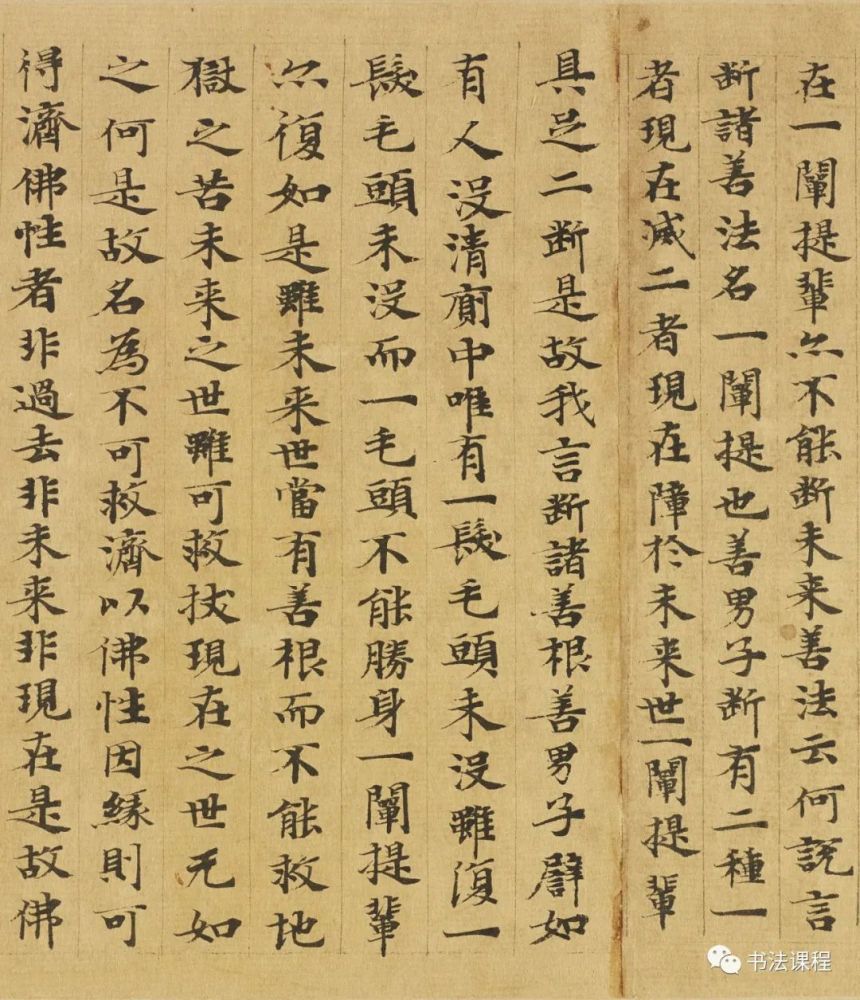 在一闡提輩尒不能断未来善法云何説言
断諸善法名一闡提也善男子断有二種一
者現在滅二者現在障於未来世一闡提輩
具足二断是故我言断諸善根善男子譬如
有人没清廁中唯有一髮毛頭未没雖復一
髮毛頭未没而一毛頭不能勝身一闡提輩
尒復如是雖未来世當有善根而不能救地
獄之苦未来之世雖可救拔現在之世无如
之何是故名為不可救濟以佛性因縁則可
得濟佛性者非過去非未来非現在是故佛
书法课程